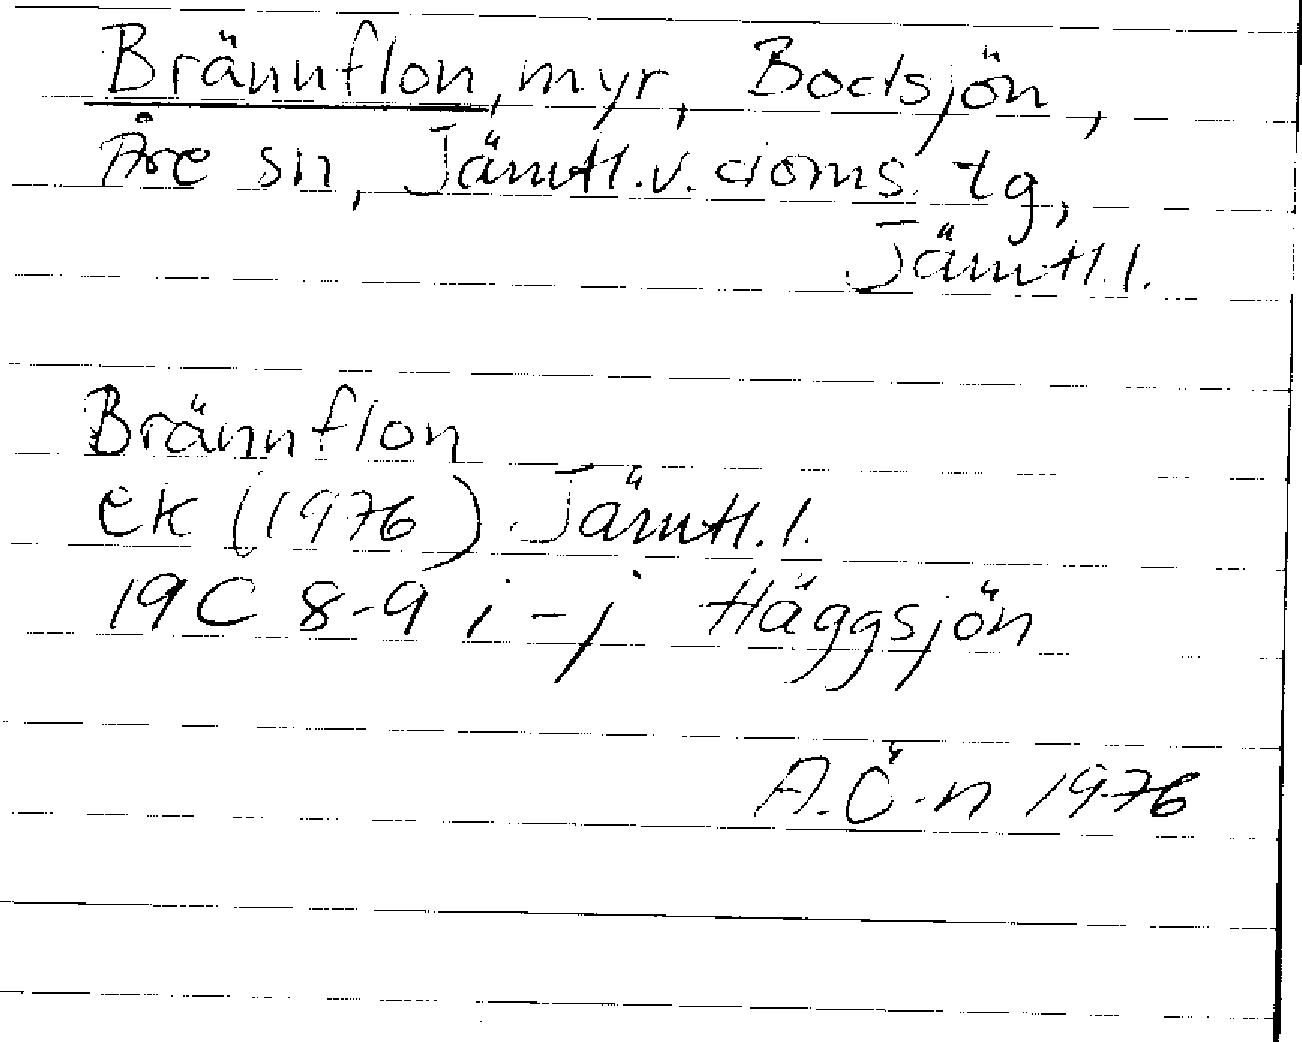 Brännflon, myr, Bodsjön,
Åre sn, Jämtl. v. doms. tg,
Jämtl. l.
Brännflon
ek (1976) Jämtl. l.
19C 8-9 i-j Häggsjön
A. Ö-n 1976